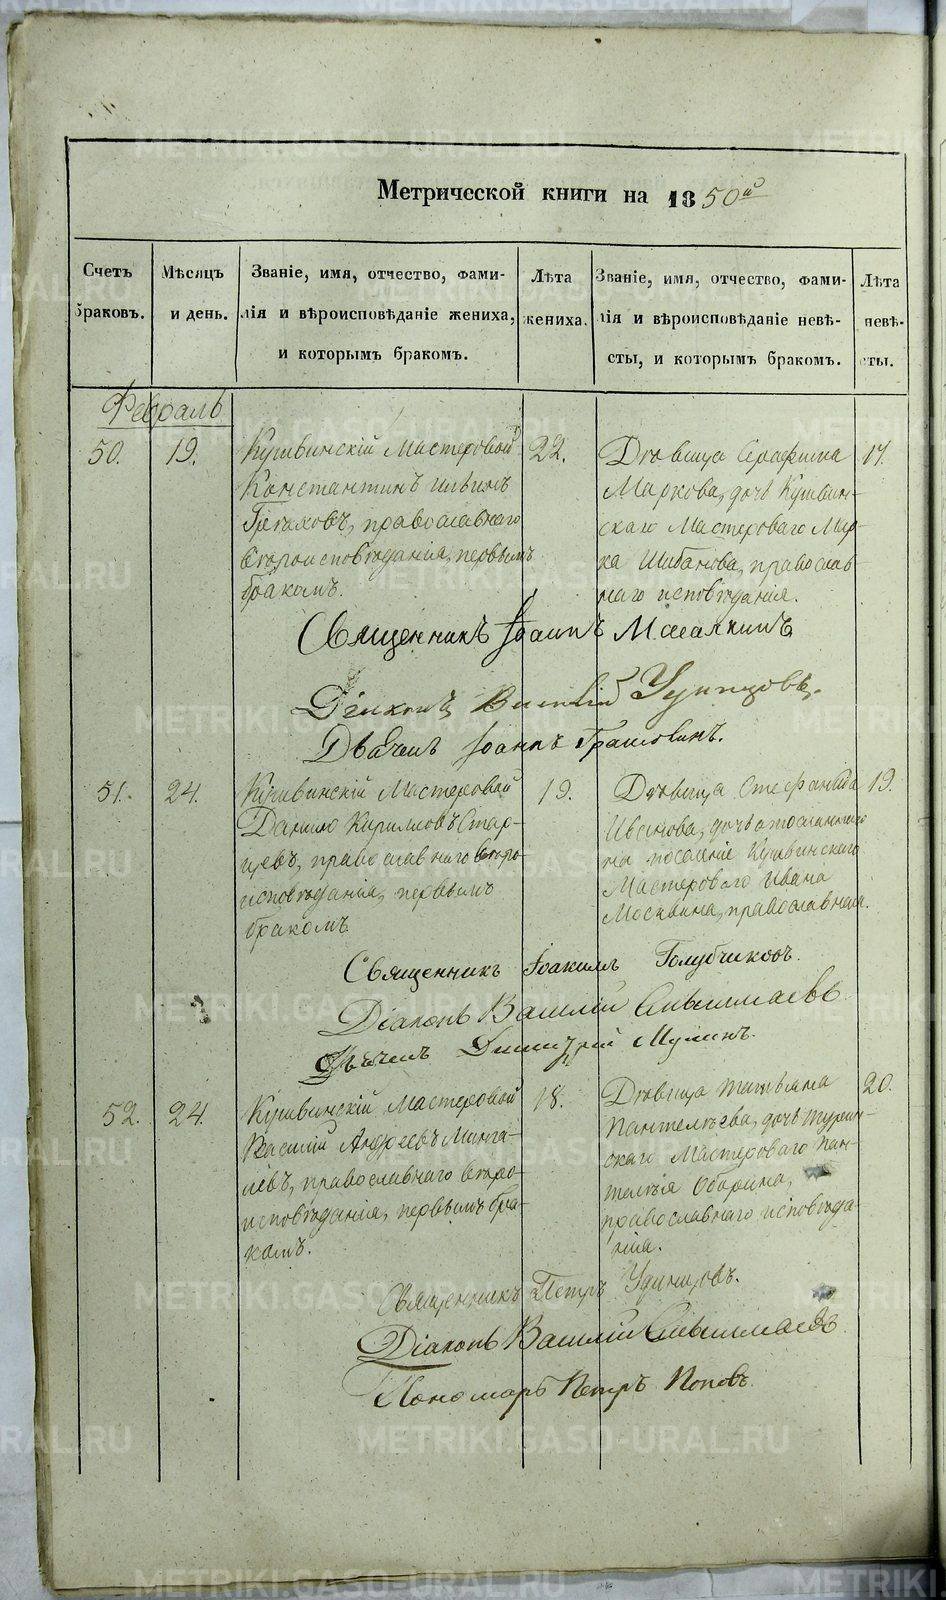 Метрической книги на 1850й
Счетъ браковъ.
Мѣсяцъ и день.
Званіе, имя, отчество, фами-
лія и вѣроисповѣданіе жениха,
и которымъ бракомъ.
Лѣта жениха.
Званіе, имя, отчество, фами-
лія и вѣроисповѣданіе невѣ-
сты, и которымъ бракомъ.
Лѣта невѣ-
сты.
Февраль
50. 19.
Кушвинскій Мастеровой
Константинъ Ильинъ
православнаго
вѣроисповѣданія, первымъ
бракомъ.
22.
Дѣвица Серафима
Маркова, дочь Кушвин-
скаго Мастероваго Мар-
ка Шибанова, православ-
наго исповѣданія.
17.
Священникъ Іоаннъ
Діаконъ Василій Удинцовъ.
Дьячекъ Іоаннъ
51. 24.
Кушвинскій Мастеровой
Данило Кириловъ Стар-
цевъ, православнаго вѣро-
исповѣданія, первымъ
бракомъ.
19.
Дѣвица Стефанида
Иванова, дочь отосланнаго
на поселеніе Кушвинскаго
Мастероваго Ивана
Москвина, православная.
19.
Священникъ Іоакимъ Голубчиковъ.
Діаконъ Василій
Дьячекъ Димитрій Мулинъ.
52. 24.
Кушвинскій Мастеровой
Василій Андреевъ Минга-
левъ, православнаго вѣро-
исповѣданія, первымъ бра-
комъ.
18.
Дѣвица Татьяна
Пантелѣева, дочь Турин-
скаго Мастероваго Пан-
телѣя Обарина,
православнаго исповѣда-
нія.
20.
Священникъ Петръ Удинцовъ.
Діаконъ Василій
Пономарь Петръ Поповъ.
METRIKI.GASO-URAL.RU